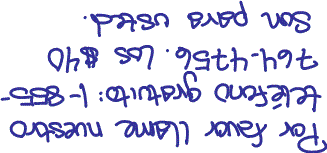 Por favor llame nuestro
teléfono gratuito: 1-855-
764-4756. Los $40
son para usted.